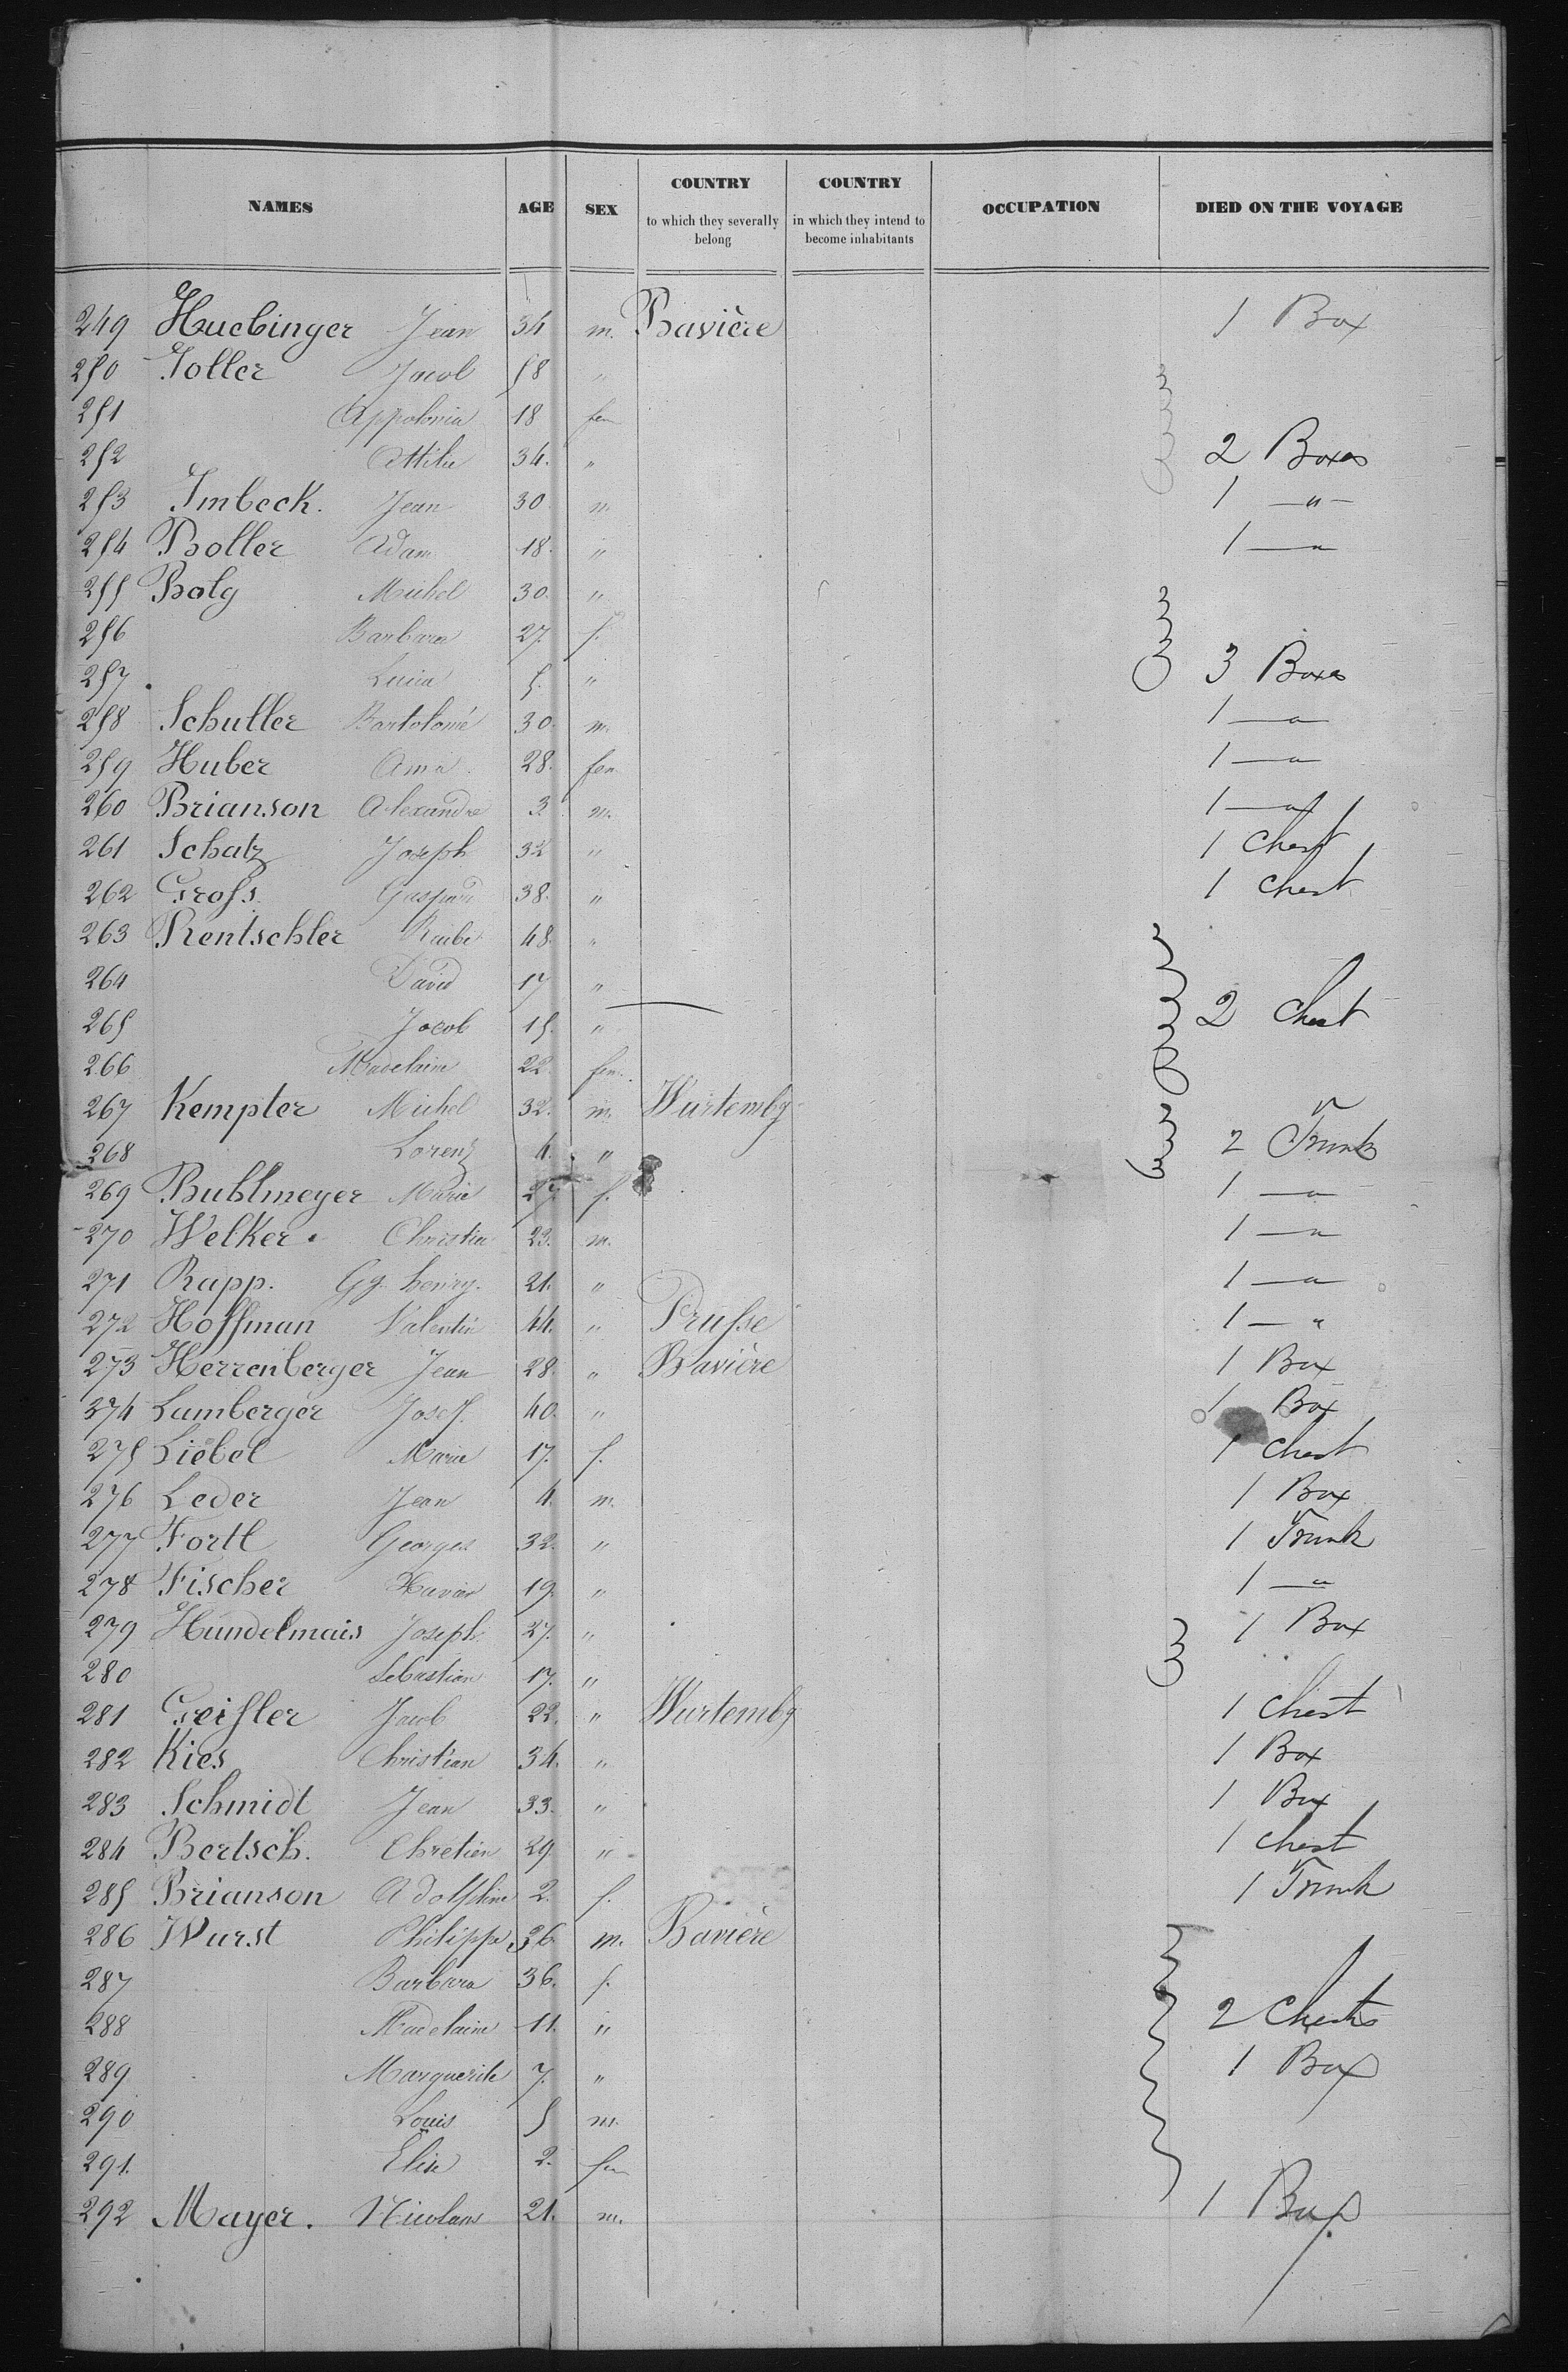 NAMES AGE SEX COUNTRY to which they severally belong COUNTRY in which they intend to become inhabitants OCCUPATION DIED ON THE VOYAGE
249 Huebinger Jean 34 m. Bavière 1 Box
250 Joller Jacob 58 "
251 Appolonia 18 fem
252 Ottilie 34. " 2 Boxes
253 Imbeck. Jean 30 m. 1 — " —
254 Boller Adam 18. " 1 — "
255 Bolg Michel 30. "
256 Barbara 27. f.
257 Lucia 5. " 3 Boxes
258 Schuller Bartolomé 30. m. 1 — "
259 Huber Anna 28. fem. 1 — "
260 Brianson Alexandre 3. m. 1 — "
261 Schatz Joseph 32 " 1 Chest
262 Groſs. Gaspard 38. " 1 Chest
263 Rentschler 48. "
264 David 17 "
265 Jacob 15. " 2 Chest
266 Madelaine 22. fem.
267 Kempter Michel 32. m. Wurtembg
268 Lorenz 4. " 2 Trunks
269 Buhlmeyer Marie 27. f. 1 — "
270 Welker. Christian 23. m. 1 — "
271 Rapp. Gg. henry. 21. " 1 — "
272 Hoffman Valentin 44. " Pruſse 1 — "
273 Herrenberger Jean 28. " Bavière 1 Box
374 Lamberger Josef. 40. " 1 Box
275 Liebel Marie 17. f. 1 Chest
276 Leder Jean 4. m. 1 Box
277 Fortl Georges 32. " 1 Trunk
278 Fischer Xavier 19. " 1 — "
279 Hundelmais Joseph 27. " 1 Box
280 Sebastian 17. "
281 Geiſsler Jacob 22. " Wurtembg 1 Chest
282 Kies Christian 34. " 1 Box
283 Schmidt Jean 33. " 1 Box
284 Bertsch. Chretien 29. " 1 Chest
285 Brianson Adolphine 2. f. 1 Trunk
286 Wurst Philippe 36 m. Bavière
287 Barbara 36. f.
288 Madelaine 11. " 2 Chests
289 Marguerite 7. " 1 Box
290 Louis 5 m.
291. Elise 2. fem
292 Mayer. Nicolaus 21. m. 1 Box